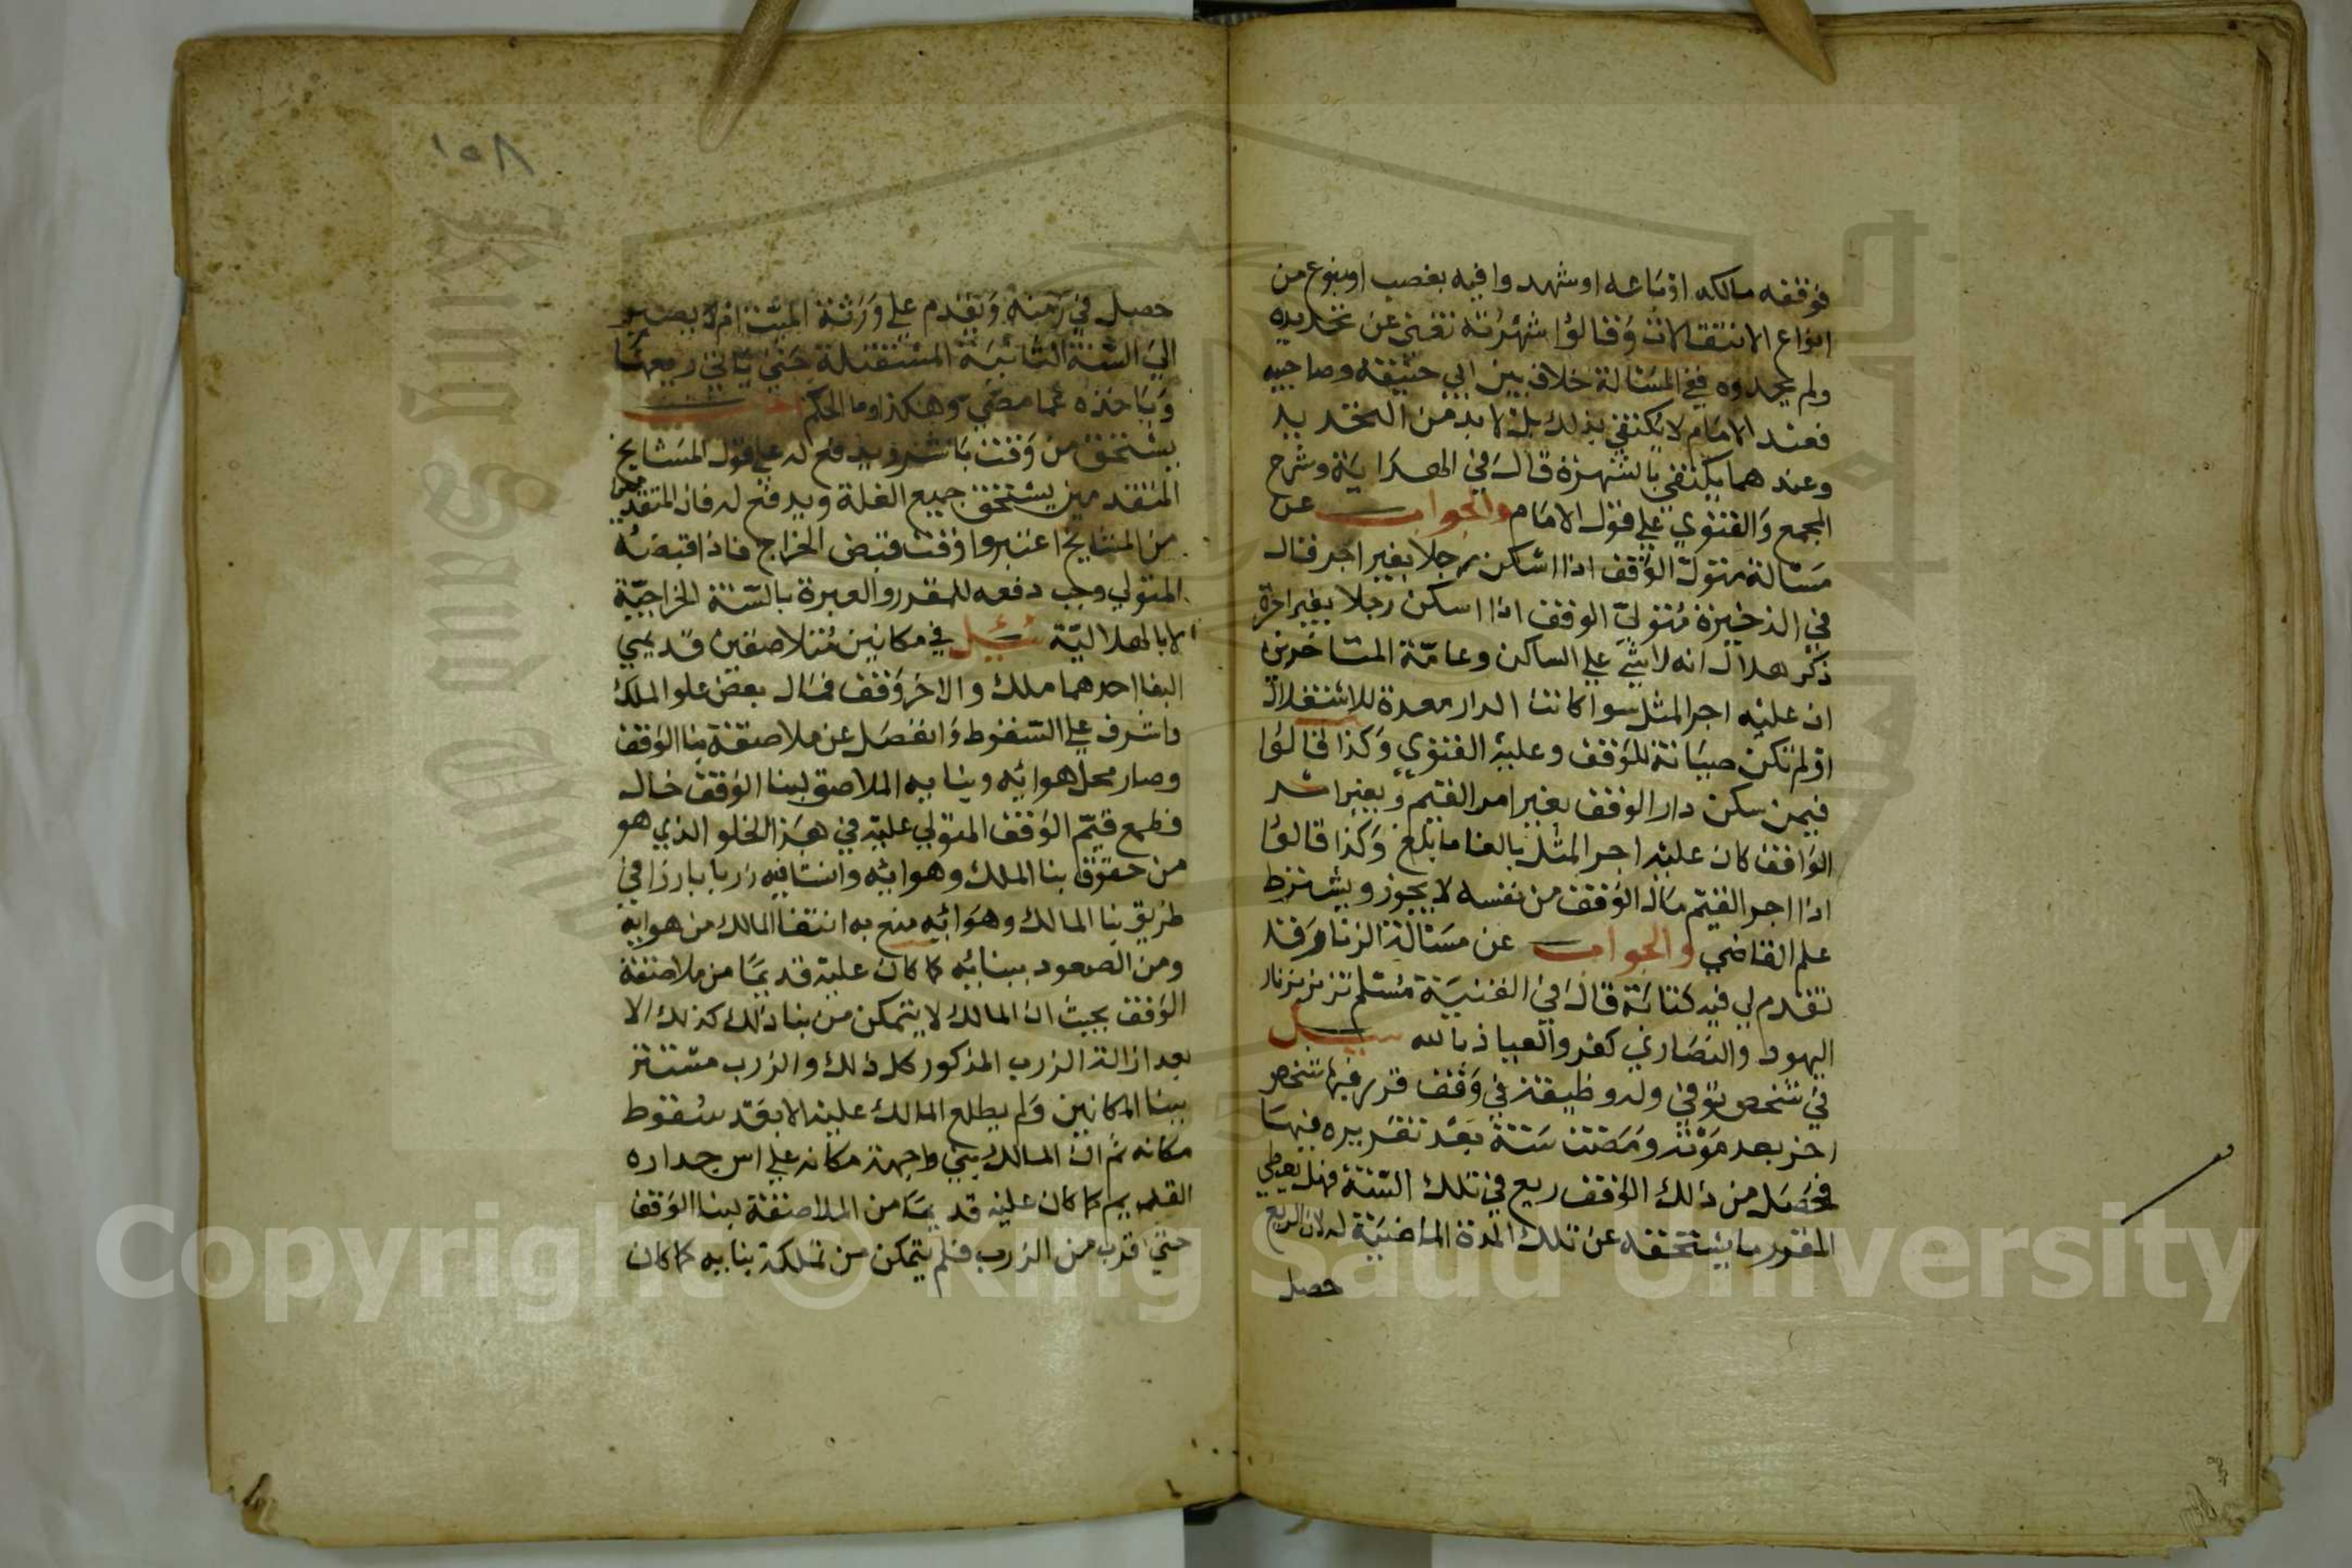 فوقفه مالكه اوباعه او شهدوا فيه بغصب او بنوع من
انواع الانتقالات وقالوا شهرته تغني عن تحديده
ولم يحدوه ففي المسالة خلاف بين ابي حنيفة وصاحبيه
فعند الامام لا يكتفي بذلك بل لا بد من التحديد
وعندهما يكتفي بالشهرة قال في الهداية وشرح
المجمع والفتوي علي قول الامام والجواب عن
مسالة متولي الوقف اذا اسكن رجلا بغير اجر قال
في الذخيرة متولي الوقف اذا اسكن رجلا بغير اجرة
ذكر هلال انه لا شي علي الساكن وعامة المتاخرين
ان عليه اجر المثل سوا كانت الدار معدة للاستغلال
او لم تكن صيانة للوقف وعليه الفتوي وكذا قالوا
فيمن سكن دار الوقف بغير امر القيم وبغير امر
الواقف كان عليه اجر المثل بالغا ما بلغ وكذا قالوا
اذا اجر القيم مال الوقف من نفسه لا يجوز ويشترط
علم القاضي والجواب عن مسالة الزنار وقد
تقدم لي فيه كتابة قال في القنية مسلم تزنر بزنار
اليهود والنصاري كفر والعياذ بالله سيل
في شخص توفي وله وظيفة في وقف قرر فيها شخص
اخر بعد موته ومضت سنة بعد تقريره فيها
فحصل من ذلك الوقف ريع في تلك السنة فهل يعطي
المقرر ما يستحقه عن تلك المدة الماضية له لان الريع
حصل
١٥٨
حصل في زمنه وتقدم علي ورثة الميت ام لا يصبر
الي السنة الثانية المستقبلة حتي ياتي ريعها
وياخذه عما مضي وهكذا وما الحكم
يستحق من وقت باشر ويدفع له علي قول المشايخ
المتقدمين يستحق جميع الغلة ويدفع له فان المتقدمين
من المشايخ اعتبروا وقت قبض الخراج فاذا قبضه
المتولي وجب دفعه للمقرر والعبرة بالسنة الخراجية
لا بالهلالية سئيل في مكانين متلاصقين قديمي
البنا احدهما ملك والاخر وقف فمال بعض علو الملك
واشرف علي السقوط وانفصل عن ملاصقة بنا الوقف
وصار محل هوائه وبنايه الملاصق لبنا الوقف خال
فطمع قيم الوقف المتولي عليه في هذا الخلو الذي هو
من حقوق بنا الملك وهوائه وانشا فيه زربا بارزا في
طريق بنا المالك وهوائه منع به انتفا المالك من هوايه
ومن الصعود ببنائه كما كان عليه قديما من ملاصقة
الوقف بحيث ان المالك لا يتمكن من بنا ذلك كذلك الا
بعد ازالة الزرب المذكور كل ذلك والزرب مستتر
ببنا المكانين ولم يطلع المالك عليه الا بعد سقوط
مكانه ثم ان المالك بني واجهة مكانه علي اس جداره
القديم كما كان عليه قديما من الملاصقة لبنا الوقف
حتي اقرب من الزرب فلم يتمكن من تملكة بنايه كما كان
Copyright © King Saud University